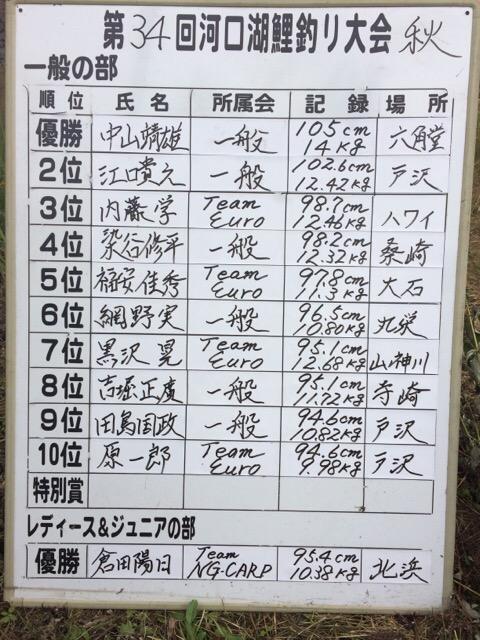 第34回河口湖鯉釣り大会 秋
一般の部
順位 氏名 所属会 記録 場所
優勝 中山靖雄 一般 105cm 14kg 六角堂
2位 江口貴之 一般 102.6cm 12.42kg 戸沢
3位 内藤学 Team Euro 98.7cm 12.46kg ハワイ
4位 染谷修平 一般 98.2cm 12.32kg 桑崎
5位 福安佳秀 Team Euro 97.8cm 11.3kg 大石
6位 網野実 一般 96.5cm 10.80kg 丸栄
7位 黒沢晃 Team Euro 95.1cm 12.68kg 山神川
8位 吉堀正廣 一般 95.1cm 11.72kg 寺崎
9位 田島国政 一般 94.6cm 10.82kg 戸沢
10位 原一郎 Team Euro 94.6cm 9.98kg 戸沢
特別賞
レディース&ジュニアの部
優勝 倉田陽日 Team NG-CARP 95.4cm 10.38kg 北浜